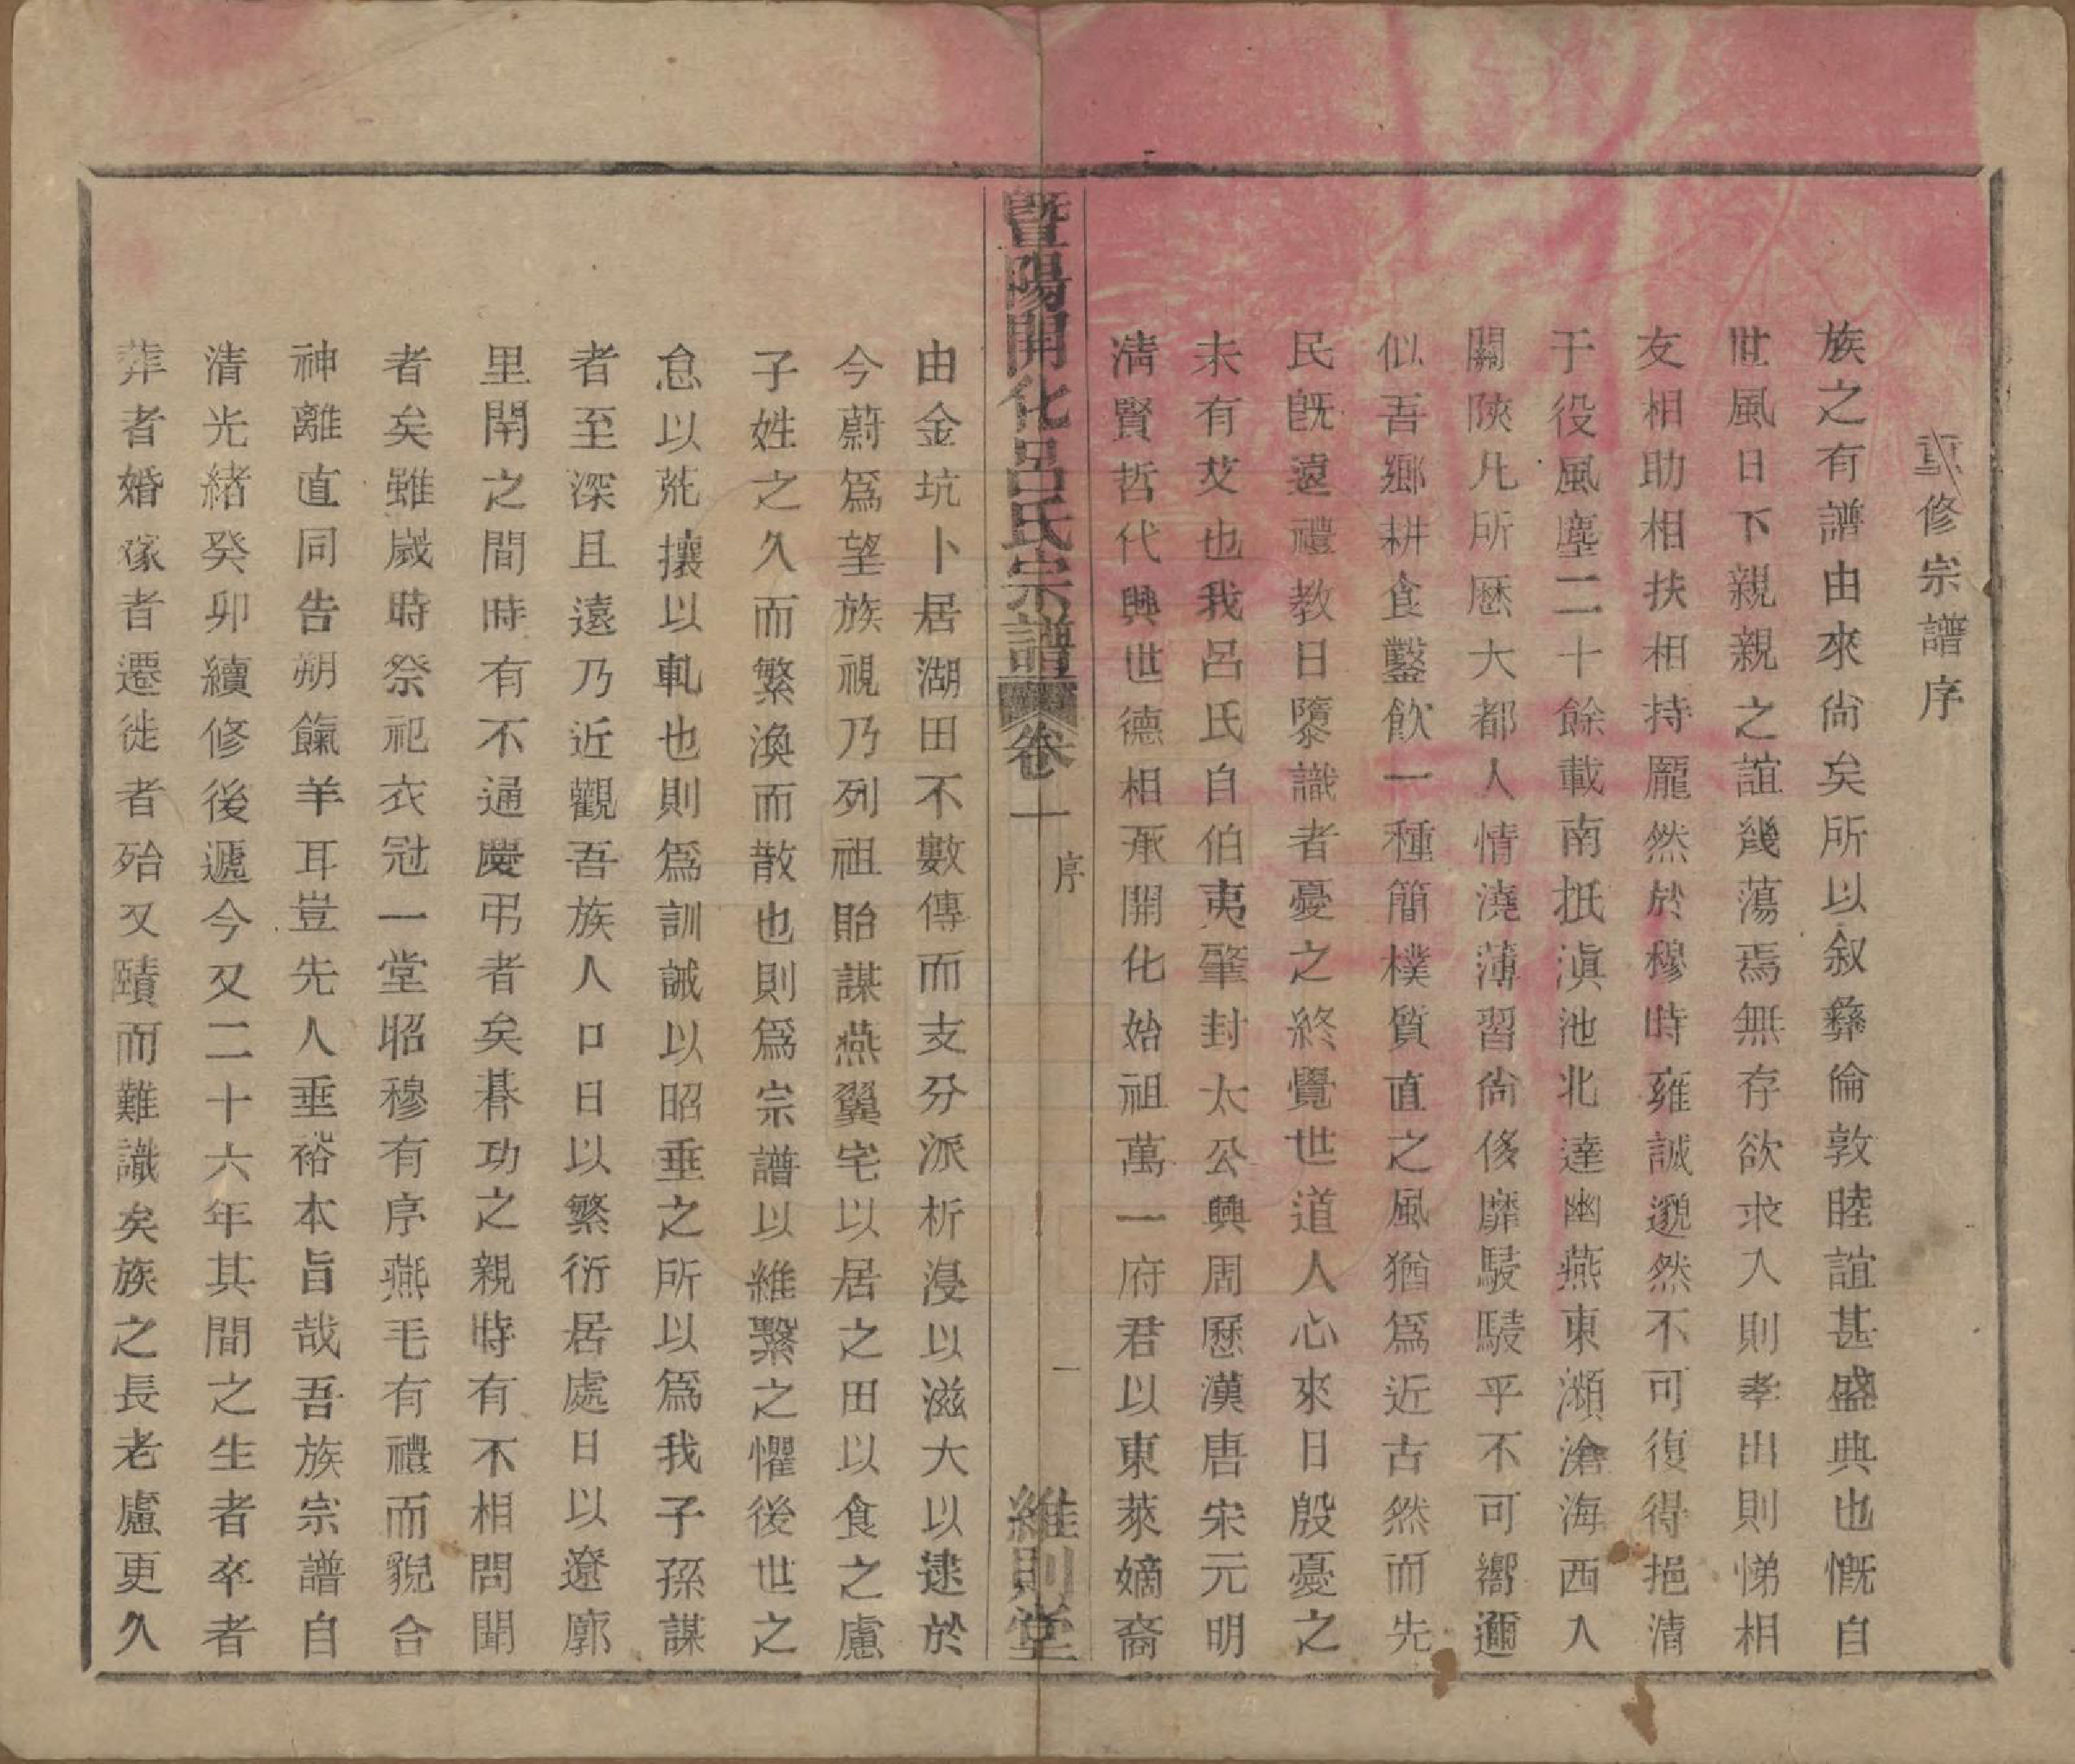 重修宗譜序
族之有譜由來尙矣所以叙彝倫敦睦誼甚盛典也慨自
世風日下親親之誼幾蕩焉無存欲求入則孝出則悌相
友相助相扶相持龎然於穆時雍誠邈然不可復得挹清
于役風塵二十餘載南抵滇池北達幽燕東瀕滄海西入
關陝凡所歷大都人情澆薄習尙侈靡駸駸乎不可嚮邇
似吾鄉耕食鑿飲一種簡樸質直之風猶爲近古然而先
民旣遠禮教日隳識者憂之終覺世道人心來日殷憂之
未有艾也我呂氏自伯夷肇封太公興周歷漢唐宋元明
淸賢哲代興世德相承開化始祖萬一府君以東萊嫡裔
暨陽開化呂氏宗譜 卷十 序 一 維則堂
由金坑卜居湖田不數傳而支分派析浸以滋大以逮於
今蔚爲望族視乃列祖貽謀燕翼宅以居之田以食之慮
子姓之久而繁渙而散也則爲宗譜以維繫之懼後世之
怠以荒攘以軋也則爲訓誡以昭垂之所以爲我子孫謀
者至深且遠乃近觀吾族人口日以繁衍居處日以遼廓
里閈之間時有不通慶弔者矣碁功之親時有不相問聞
者矣雖歲時祭祀衣冠一堂昭穆有序燕毛有禮而貌合
神離直同告朔餼羊耳豈先人垂裕本旨哉吾族宗譜自
清光緒癸卯續修後遞今又二十六年其間之生者卒者
葬者婚嫁者遷徙者殆又賾而難識矣族之長老慮更久